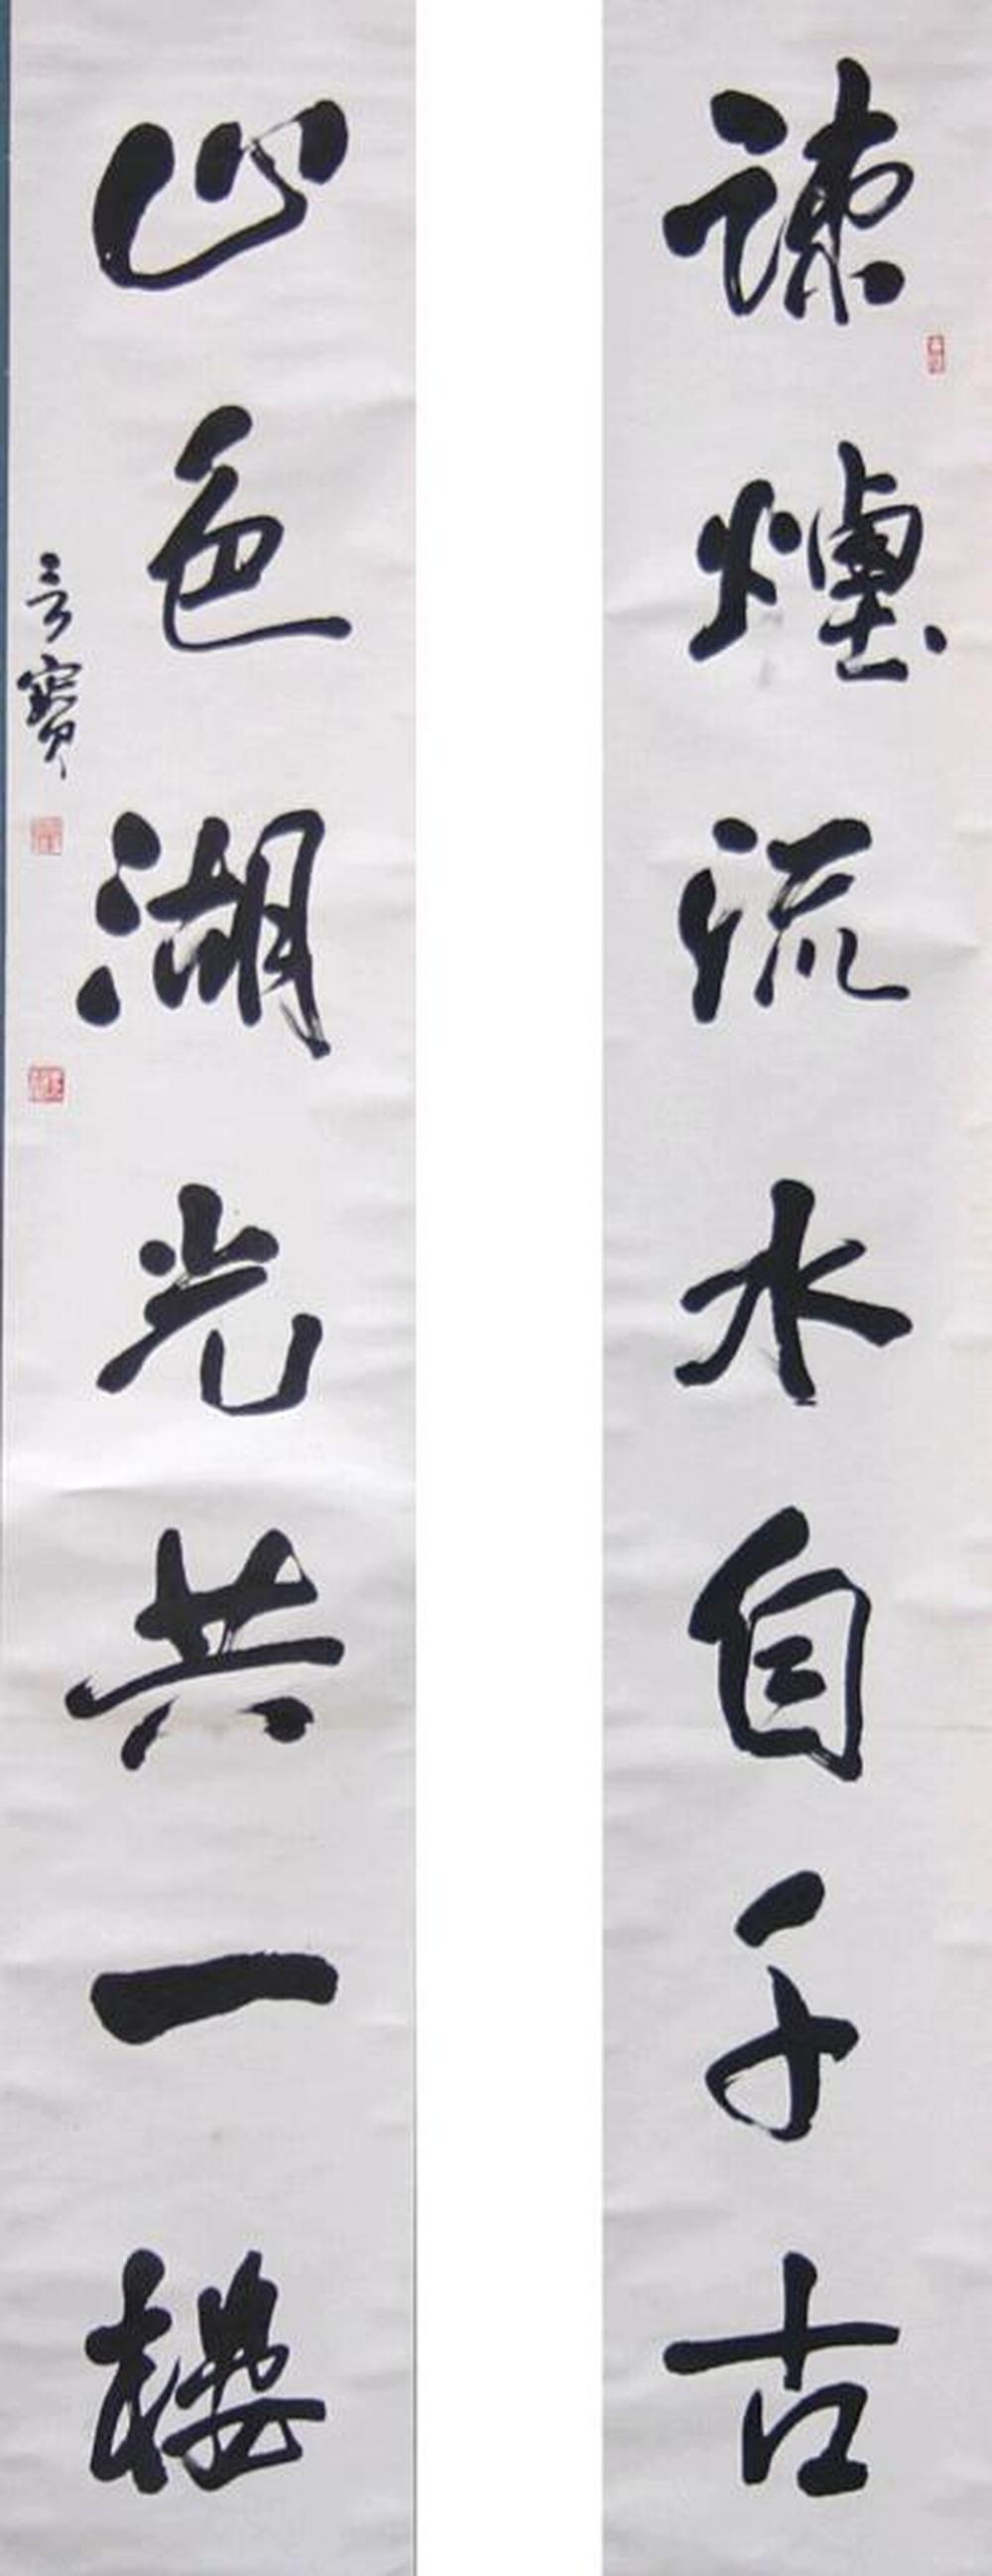 疎煙流水自千古
山色湖光共一樓